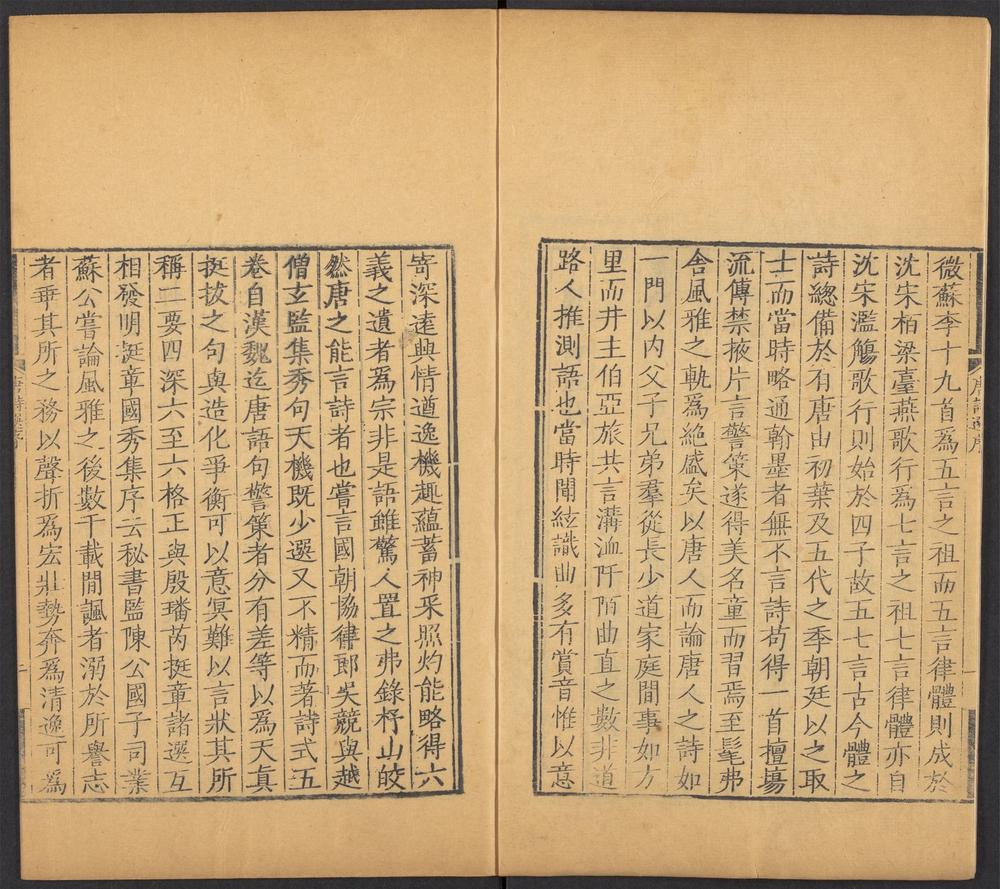 微蘇李十九首爲五言之祖而五言律體則成於
沈宋栢梁臺燕歌行爲七言之祖七言律體亦自
沈宋濫觴歌行則始於四子故五七言古今體之
詩總備於有唐由初葉及五代之季朝廷以之取
士而當時略通翰墨者無不言詩苟得一首擅塲
流傳禁掖片言警策遂得美名童而習焉至髦弗
舍風雅之軌爲絶盛矣以唐人而論唐人之詩如
一門以內父子兄弟羣從長少道家庭間事如方
里而井主伯亞旅共言溝洫阡陌曲直之數非道
路人推測語也當時聞絃識曲多有賞音惟以意
唐詩選序
寄深遠興情遒逸機趣蘊蓄神采照灼能略得六
義之遺者爲宗非是語雖驚人置之弗錄杼山皎
然唐之能言詩者也嘗言國朝協律郎吳競與越
僧玄監集秀句天機旣少選又不精而著詩式五
卷自漢魏迄唐語句警策者分有差等以爲天真
挺拔之句與造化爭衡可以意冥難以言狀其所
稱二要四深六至六格正與殷璠芮挺章諸選互
相發明挺章國秀集序云秘書監陳公國子司業
蘇公嘗論風雅之後數千載間諷者溺於所譽志
者乖其所之務以聲折爲宏壯勢奔爲清逸可爲
唐詩選序
二